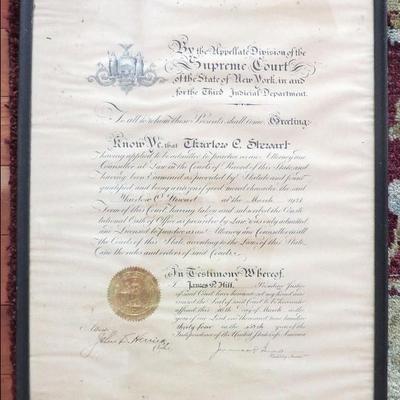 By the Appellate Division of the
Supreme Court
of the State of New York, in and
for the Third Judicial Department.
To all to whom these Presents shall come Greeting:
Know Ye, that Charles C. Stewart
having applied to be admitted to practice as an Attorney and
Counsellor at Law in the Courts of Record of this State, and
having been Examined as provided by Statute and found
qualified and being a person of good moral character, the said
at the March 1934
Term of this Court having taken and subscribed the Consti-
tutional Oath of Office as provided by Law, is hereby admitted
and Licensed to Practice as an Attorney and Counsellor in all
the Courts of this State, according to the Laws of this State,
and the rules and orders of said Courts.
In Testimony Whereof,
I James P. Hill, Presiding Justice
of said Court have hereunto set my hand and
caused the Seal of said Court to be hereunto
affixed this day of March in the
year of our Lord one thousand nine hundred
thirty four in the year of the
Independence of the United States of America
Attest
John S. Herrick
Presiding Justice